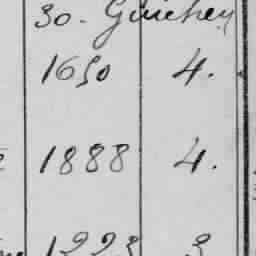 30. Guichen
1650 4.
1888 4.
1223 3